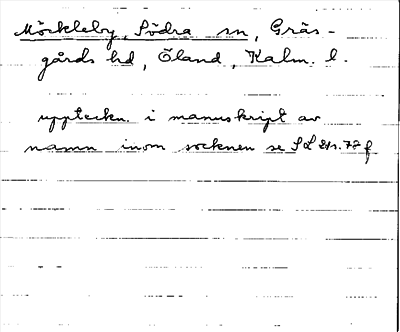 Möckleby, Södra sn, Gräs-
gårds hd, Öland, Kalm. l.
uppteckn. i manuskript av
namn inom socknen se SL 21 s. 72 f